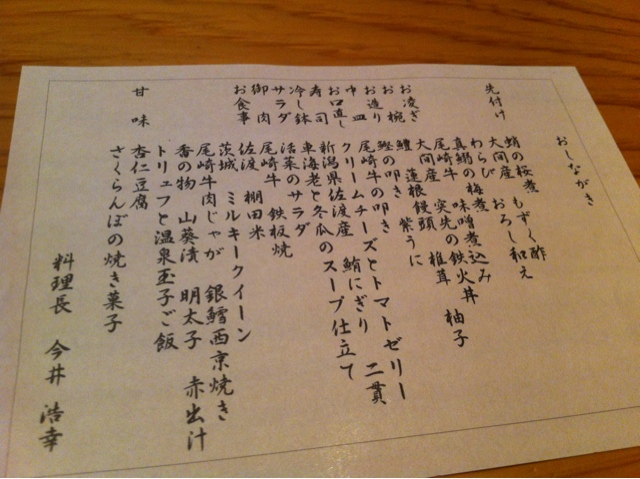 おしながき
先付け 蛸の桜煮 もずく酢
大間産 おろし和え
わらび
真鰯の梅煮
尾崎牛 味噌煮込み
お凌ぎ 大間産 の鉄火丼
お椀 鱧 蓮根饅頭 椎茸 柚子
お造り 鰹の叩き 紫うに
中皿 尾崎牛の叩き
お口直し クリームチーズとトマトゼリー
寿司 新潟県佐渡産 鮪にぎり 二貫
冷し鉢 車海老と冬瓜のスープ仕立て
サラダ 活菜のサラダ
御肉 尾崎牛 鉄板焼
お食事 佐渡 棚田米
茨城 ミルキークイーン
尾崎牛肉じゃが 銀鱈西京焼き
香の物 山葵漬 明太子 赤出汁
トリュフと温泉玉子ご飯
甘味 杏仁豆腐
さくらんぼの焼き菓子
料理長 今井 浩幸